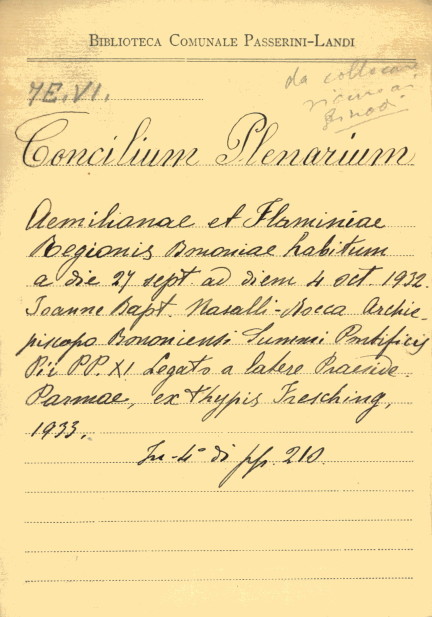 BIBLIOTECA COMUNALE PASSERINI-LANDI
7E.VI.
da collocare
vicino ai
Sinodi
Concilium Plenarium
Aemilianae et Flaminiae
Regionis Bononiae habitum
a die 27 sept ad diem 4 oct. 1932.
Ioanne Bapt. Nasalli-Rocca Archie-
piscopo Bononiensi Summi Pontificis
Pii PP. XI Legato a latere Praeside.
Parmae, ex thypis Fresching,
1933.
In-4° di pp. 210.